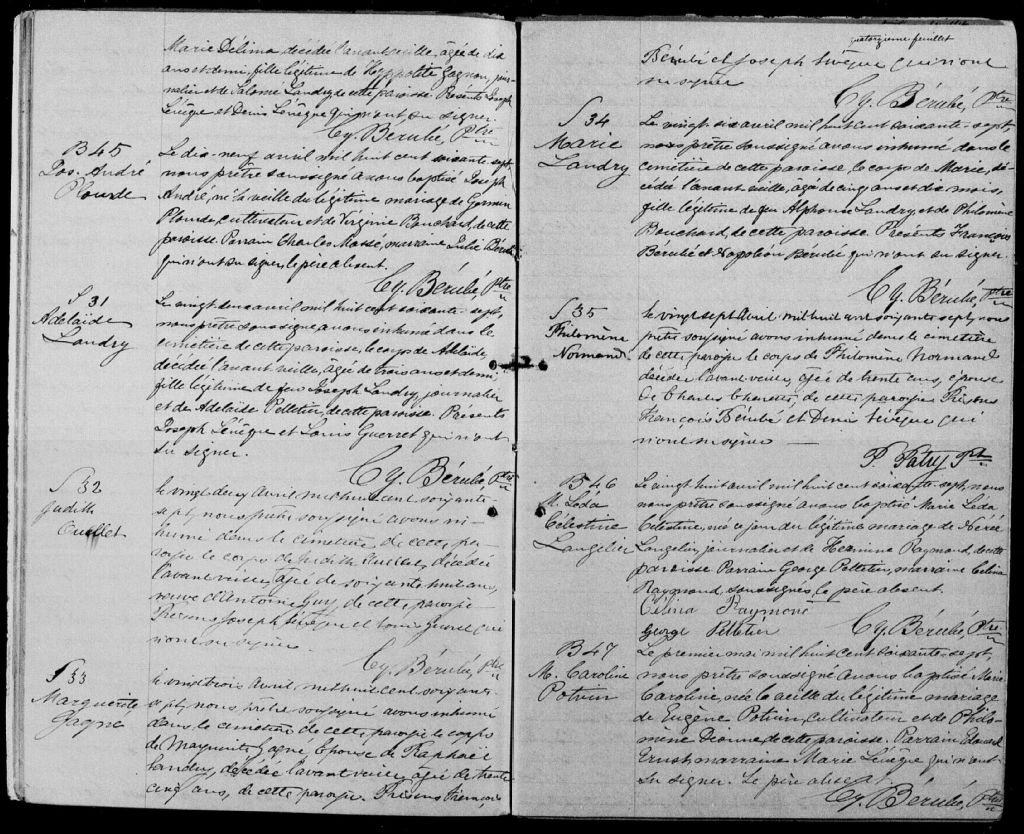 Marie Délima, décédée l'avant veille, âgée de dix
ans et demi, fille légitime de Hyppolite Gagnon, jour-
nalier et de Salomé Landry de cette paroisse. Présents Joseph
Lévêque et Denis Lévêque qui n'ont su signer.
Cy. Bérubé, Ptre
B 45
Jos. André
Plourde
Le dix-neuf avril mil huit cent soixante-sept,
nous prêtre soussigné avons baptisé Joseph
André, né la veille du légitime mariage de Germain
Plourde, cultivateur et de Virginie Bouchard, de cette
paroisse. Parrain Charles Massé, marraine Julie Bérubé
qui n'ont su signer, le père absent.
Cy. Bérubé, Ptre
S 31
Adélaïde
Landry
Le vingt un avril mil huit cent soixante-sept,
nous prêtre soussigné, avons inhumé dans le
cimetière de cette paroisse, le corps de Adélaïde,
décédée l'avant veille, âgée de trois ans et demi,
fille légitime de feu Joseph Landry, journalier
et de Adélaïde Pelletier, de cette paroisse. Présents
Joseph Lévêque et Louis Guerret qui n'ont
su signer.
Cy. Bérubé, Ptre
S 32
Judith
Ouellet
le vingt deux Avril mil huit cent soixante-
sept, nous prêtre soussigné avons in-
humé dans le cimetière de cette pa-
roisse le corps de Judith Ouellet, décédée
l'avant veille, âgée de soixante huit ans,
veuve d'Antoine Guy, de cette paroisse
Présens Joseph Lévêque et Louis Guerret qui
n'ont su signer.
Cy. Bérubé, Ptre
S 33
Marguerite
Gagné
le vingt trois Avril mil huit cent soixante
sept, nous prêtre soussigné avons inhumé
dans le cimetière de cette paroisse le corps
de Marguerite Gagné Epouse de Raphaël
Landry, décédée l'avant veille, âgée de trente
cinq ans, de cette paroisse. Présens François
quatorzième feuillet
Bérubé et Joseph Lévêque qui n'ont
su signer
Cy. Bérubé, Ptre
S 34
Marie
Landry
Le vingt six avril mil huit cent soixante-sept,
nous prêtre soussigné avons inhumé dans le
cimetière de cette paroisse le corps de Marie, dé-
cédée l'avant veille, âgée de cinq ans et dix mois,
fille légitime de feu Alphonse Landry, et de Philomène
Bouchard, de cette paroisse. Présents François
Bérubé et Napoléon Bérubé qui n'ont su signer.
Cy. Bérubé, Ptre
S 35
Philomène
Normand
le vingt sept Avril mil huit cent soixante sept, nous
prêtre soussigné avons inhumé dans le cimetière
de cette paroisse le corps de Philomène Normand
décédée l'avant veille, âgée de trente ans, épouse
de Charles Charette, de cette paroisse Présens
François Bérubé et Denis Lévêque qui
n'ont su signer
P. Patry Pt
B 46
M. Léda
Célestine
Langelier
Le vingt huit avril mil huit cent soixante-sept, nous
nous prêtre soussigné avons baptisé Marie Léda
Célestine, née ce jour du légitime mariage de Nérée
Langelier, journalier et de Hermine Raymond, de cette
paroisse Parrain George Pelletier, marraine Célina
Raymond soussignés, le père absent.
Célina Raymond
George Pelletier
Cy. Bérubé, Ptre
B 47
M. Caroline
Potvin
Le premier mai mil huit cent soixante-sept,
nous prêtre soussigné avons baptisé Marie
Caroline, née la veille du légitime mariage
de Eugène Potvin, cultivateur et de Philo-
mène Dionne, de cette paroisse. Parrain Edouard
marraine Marie Lévêque qui n'ont
su signer. Le père absent
Cy. Bérubé, Ptre